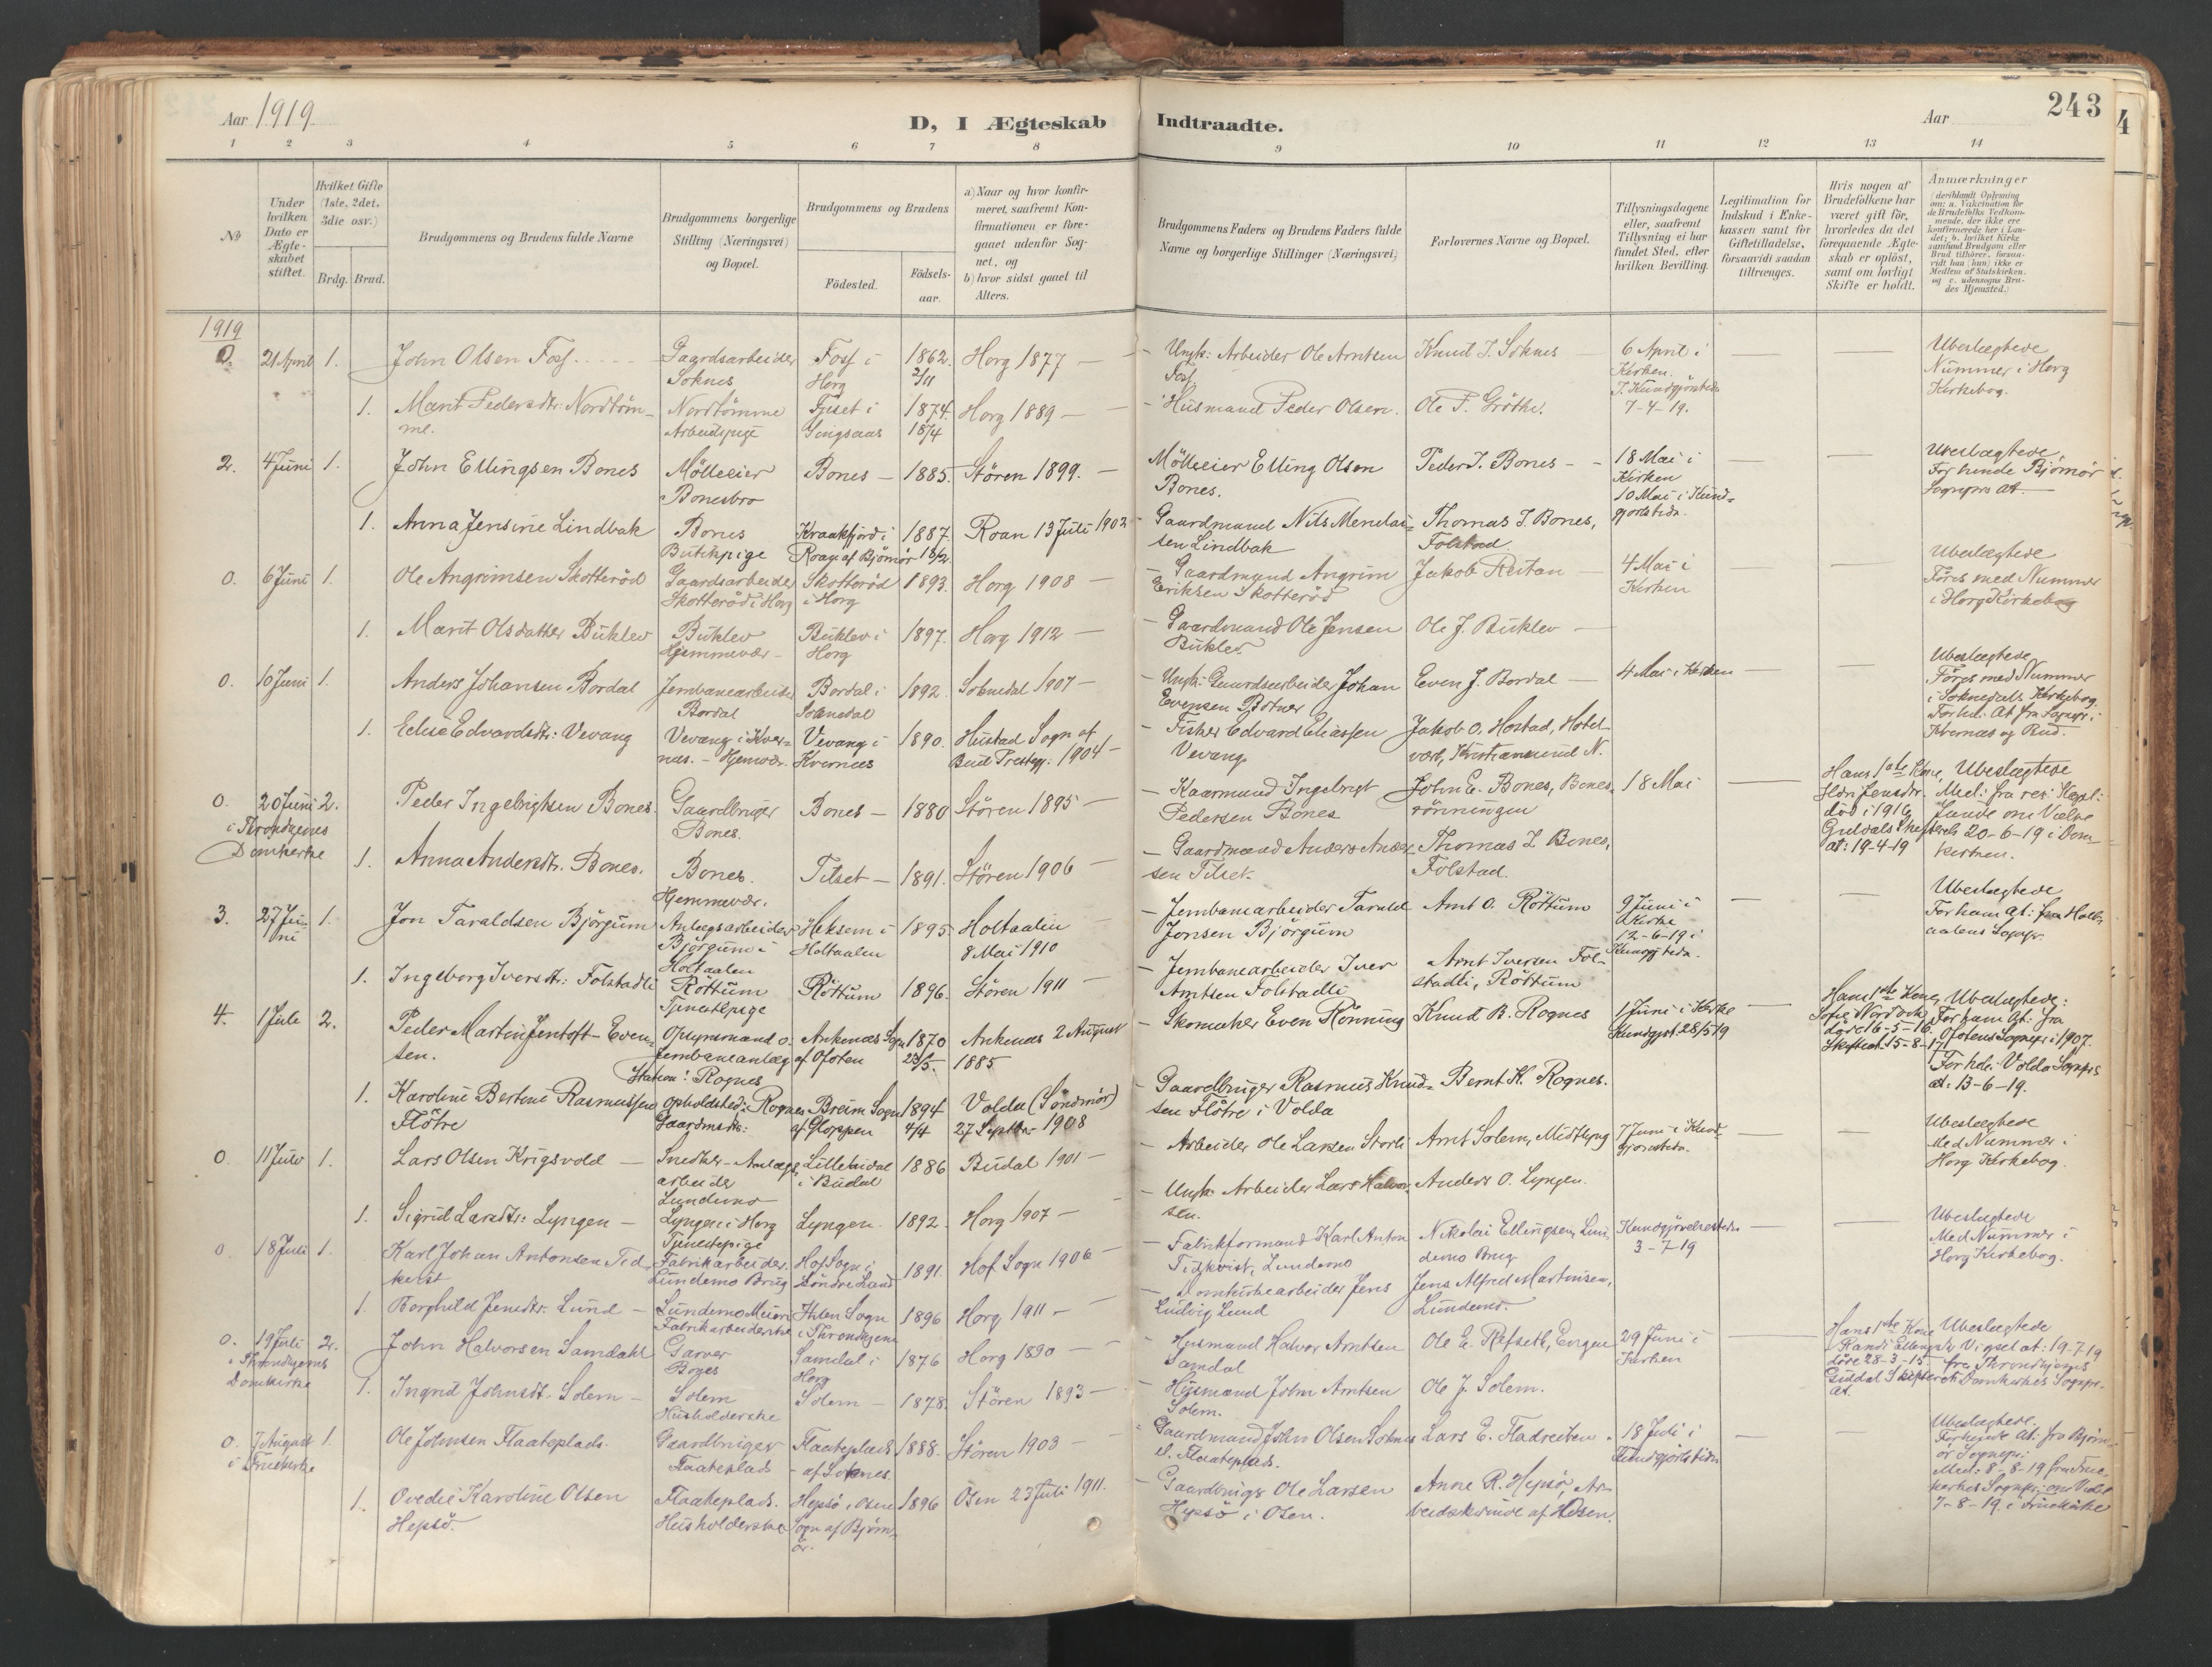 Aar 1919
D, I Ægteskab Indtraadte.
Aar
243
1 2 3 4 5 6 7 8 9 10 11 12 13 14
No
Under hvilken Dato er Ægteskabet stiftet.
Hvilket Gifte (1ste, 2det, 3die osv.)
Brdg. Brud.
Brudgommens og Brudens fulde Navne
Brudgommens borgerlige Stilling (Næringsvei) og Bopæl.
Brudgommens og Brudens
Födested.
Födselsaar.
a) Naar og hvor konfirmeret, saafremt Konfirmationen er foregaaet udenfor Sognet, og
b) hvor sidst gaaet til Alters.
Brudgommens Faders og Brudens Faders fulde Navne og borgerlige Stillinger (Næringsvei)
Forlovernes Navne og Bopæl.
Tillysningsdagene eller, saafremt Tillysning ei har fundet Sted, efter hvilken Bevilling.
Legitimation for Indskud i Enkekassen samt for Giftetilladelse, forsaavidt saadan tiltrænges.
Hvis nogen af Brudefolkene har været gift för, hvorledes da det foregaaende Ægteskab er oplöst, samt om lovligt Skifte er holdt.
Anmærkninger
1919
0. 21 April 1. John Olsen Foss Gaardsarbeider Soknes Foss i Horg 1862 2/11 Horg 1877 — Ungk: Arbeider Ole Arntsen Foss Knud J. Soknes 6 April i Kirken. I Kundgjørelsestn 7-4-19. Ubeslægtede Nummer i Horg Kirkebog.
1. Marit Pedersdtr: Nordtömme. Nordtömme Arbeidspige Fjeset i Singsaas 1874. 18/4 Horg 1889 — Husmand Peder Olsen. Ole P. Gröthe.
2. 4 Juni 1. John Ellingsen Bones Mölleeier Bonesbro Bones — 1885. Stören 1899. — Mölleeier Elling Olsen Bones. Peder J. Bones — 18 Mai i Kirken 10 Mai i Kundgjorlstedn. Ubeslægtede, For hende Bjørnör Sognprs At.
1. Anna Jensine Lindbak Bones Butikpige Kraakfjord i Roan af Bjørnör 1887. 18/2 Roan 13 Juli 1902 Gaardmand Nils Mendaisen Lindbak Thomas J. Bones, Folstad
0. 6 Juni 1. Ole Angrimsen Skotteröd Gaardsarbeider Skotteröd i Horg Skotteröd i Horg 1893. Horg 1908 — Gaardmand Angrim Eriksen Skotteröd Jakob Reitan — 4 Mai i Kirken Ubeslægtede Föres med Nummer i Horg Kirkebog
1. Marit Olsdatter Buklev Buklev Hjemmevær. Buklev i Horg 1897. Horg 1912 — Gaardmand Ole Jensen Buklev Ole J. Buklev —
0. 10 Juni 1. Anders Johansen Bordal Jernbanearbeider Bordal Bordal i Soknedal 1892. Soknedal 1907 — Ungk: Gaardsarbeider Johan Evensen Botner Even J. Bordal — 4 Mai i Kirken Ubeslægtede Föres med Nummer i Soknedals Kirkebog. For hd: At fra Sognpr: i Kvernæs og Bud.
1. Edvardsdtr: Vevang Vevang i Kvernæs. — Hjemvær. Vevang i Kvernæs 1890. Hustad Sogn af Bud Prestegj: 1904 — Fisker Edvard Eliassen Vevang. Jakob O. Hostad, Hotelvært, Kristiansund N.
0. 20 Juni i Throndhjems Domkirke 2. Peder Ingebrigtsen Bones. Gaardbruger Bones. Bones — 1880 Stören 1895 — Kaarmand Ingebrigt Pedersen Bones John E. Bones, Bonesrönningen 18 Mai Hans 1ste Kone, Jensdtr. död i 1916 Guldals Skifteret at: 19-4-19 Ubeslægtede Med: fra res: Kapl: Lunde om Vielse 20-6-19 i Domkirken.
1. Anna Andersdtr. Bones. Bones. Hjemmevær. Tilset — 1891. Stören 1906 — Gaardmand Anders Andersen Tilset. Thomas I. Bones, Folstad.
3. 27 Juni 1. Jon Taraldsen Bjørgum Anlægsarbeider Bjørgum i Holtaalen Heksem i Holtaalen 1895 Holtaalen 8 Mai 1910 Jernbanearbeider Tarald Jonsen Bjørgum Arnt O. Röttum 9 Juni i Kirke 12-6-19 i Kungjtedn. Ubeslægtede For ham At: fra Holtaalens Sognpr.
1. Ingeborg Iversdtr: Folstadli Röttum Tjenestepige Röttum 1896. Stören 1911 — Jernbanearbeider Iver Arntsen Folstadli Arnt Iversen Folstadli, Röttum
4. 1 Juli 2. Peder Martin Jentoft Evensen. Opsynsmand v. Jernbaneanlæg Station: Rognes Ankenæs Sogn af Ofoten 1870 23/5. Ankenæs 2 August 1885 — Skomaker Even Rönning Knud B. Rognes 1 Juni i Kirke Kundgjort. 28/5 19 Hans 1ste Kone, Sofie Nordvik döde 16-5-16. Skifteat. 15-8-17. Ubeslægtede: For ham At: fra Ofotens Sognepr: i 1907. For hd: Volda Sognprs at: 13-6-19.
1. Karoline Bertine Rasmussen Flötre Opholdsted: Rognes Gaardmsdtr: Breim Sogn af Gloppen 1894 4/4 Volda (Söndmör) 27 Septbr. 1908 Gaardbruger Rasmus Knudsen Flötre i Volda Bernt K. Rognes.
0. 11 Juli 1. Lars Olsen Krigsvold — Snedker - Anlægsarbeider Lundemo Lillebudal i Budal 1886 Budal 1901 — Arbeider Ole Larsen Storli Arnt Solem, Midtlyng 7 Juni i Kundgjorelstedn. Ubeslægtede Med Nummer i Horg Kirkebog.
1. Sigrid Larsdtr: Lyngen — Lyngen i Horg Tjenestepige Lyngen. 1892. Horg 1907 — Ungk: Arbeider Lars Halvorsen. Anders O. Lyngen.
0. 18 Juli 1. Karl Johan Antonsen Tidkvist Fabrikarbeider. Lundemo Brug Hof Sogn i Söndre Land 1891. Hof Sogn 1906 — Fabrikformand Karl Anton Tidkvist, Lundemo Nikolai Ellingsen, Lundemo Brug Kundgjörelsestedn 3-7-19 Ubeslægtede Med Nummer i Horg Kirkebog.
1. Borghild Jensdtr. Lund — Lundemo Fabrikarbeiderske Ihlen Sogn i Throndhjem 1896 Horg 1911 — Domkirkearbeider Jens Ludvig Lund Jens Alfred Martinsen, Lundemo.
0. 19 Juli i Throndhjems Domkirke 2. John Halvorsen Samdahl Garver Bones Samdal i Horg 1876 Horg 1890 — Husmand Halvor Arntsen Samdal Ole E. Refseth, Engen 29 Juni i Kirken Hans 1ste Kone Randi Ellingsdtr döde 28-3-15 Guldal Skifteret at. Ubeslægtede Vigsel at: 19-7-19 fra Throndhjems Domkirkes Sognpr.
1. Ingrid Johnsdt. Solem — Solem Husholderske Solem — 1878. Stören 1893 — Husmand John Arntsen Solem. Ole J. Solem.
0. 7 August i Fruekirke 1. Ole Johnsen Flaateplads. Gaardbruger Flaateplads Flaateplads af Soknes. 1888. Stören 1903 — Gaardmand John Olsen Soknes el. Flaateplads. Lars E. Fladreiten. 18 Juli i Kundgjörlstedn Ubeslægtede. For hende At: fra Bjørnör Sognepr: Med: 8-8-19 fra Fruekirkes Sognpr: om Vielse 7-8-19 i Fruekirke
1. Ovedie Karoline Olsen Hepsö. Flaateplads. Husholderske Hepsö i Osen Sogn af Bjørnör. 1896 Osen 23 Juli 1911. — Gaardbruger Ole Larsen Hepsö i Osen. Anne R. Hepsö, Arbeidskvinde af Osen.